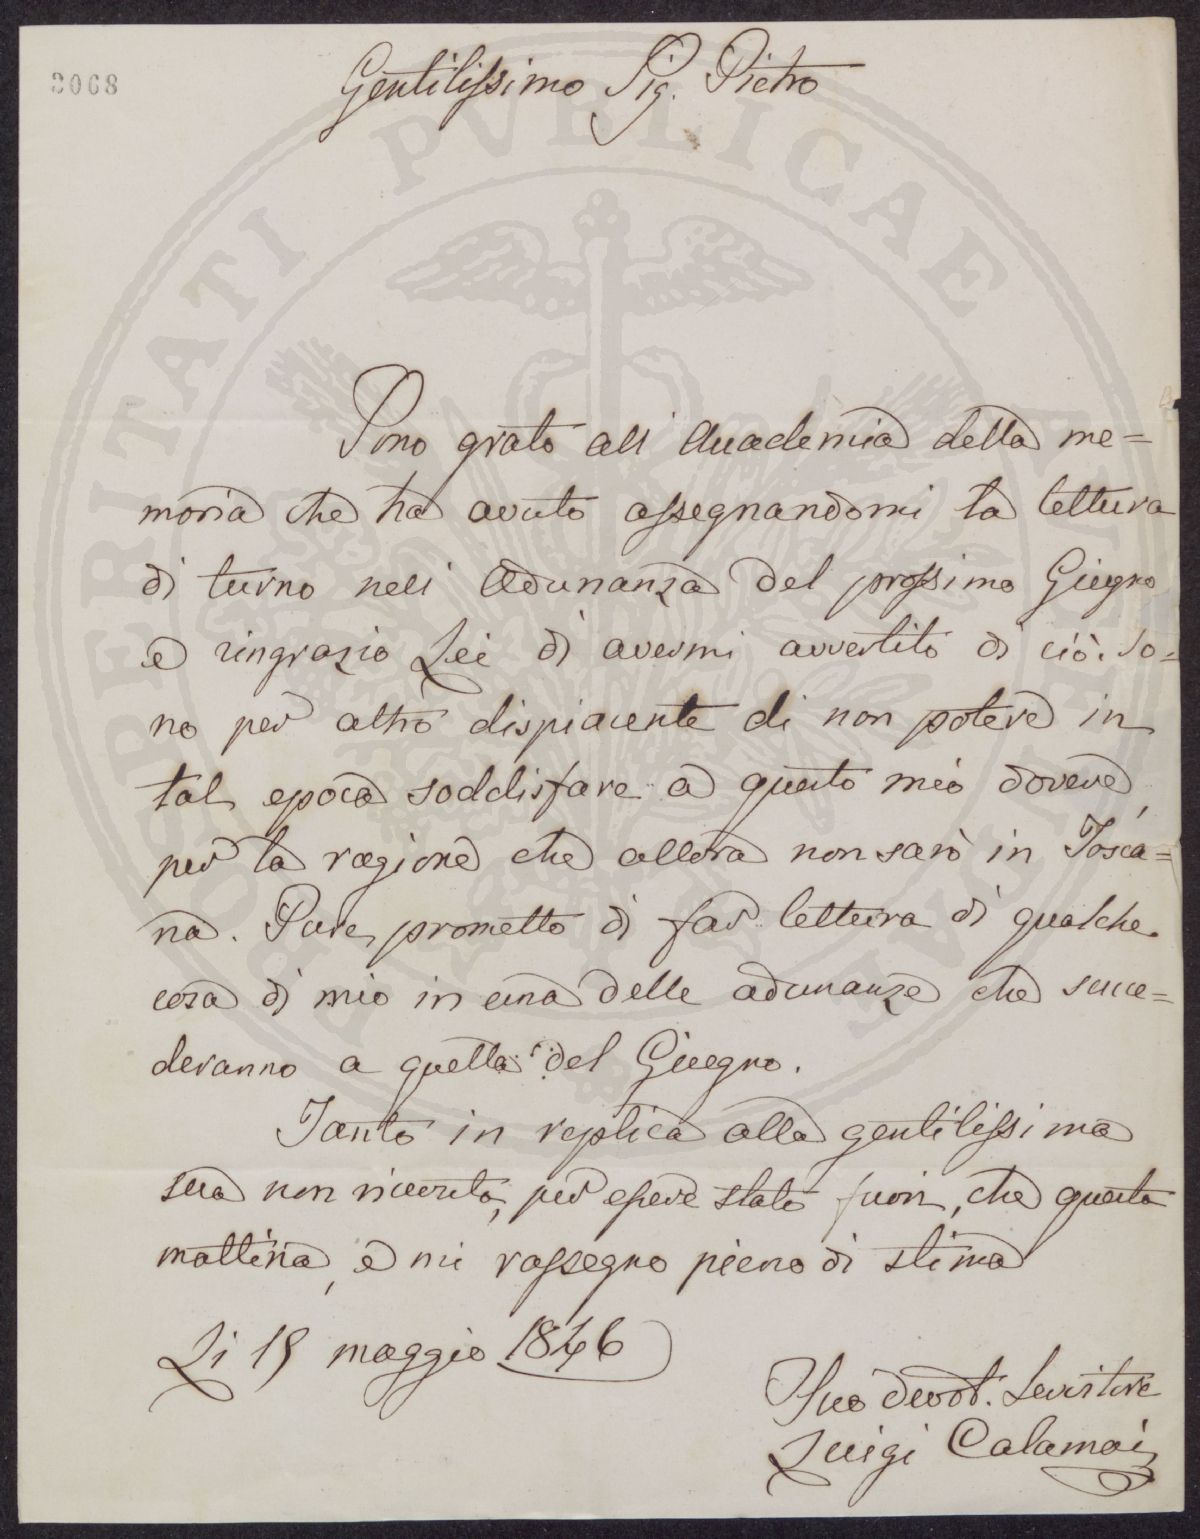 3068
Gentilissimo Sig. Pietro
Sono grato all' Accademia della me=
moria che ha avuto assegnandomi la lettura
di turno nell' Adunanza del prossimo Giugno
e ringrazio Lei di avermi avvertito di ciò. So=
no per altro dispiacente di non potere in
tal epoca soddisfare a questo mio dovere,
per la ragione che allora non sarò in Tosca=
na. Pure, prometto di far lettura di qualche
cosa di mio in una delle adunanze che succe=
deranno a quella del Giugno.
Tanto in replica alla gentilissima
sua non ricevuta, per essere stato fuori, che questa
mattina, e mi rassegno pieno di stima
Li 15 maggio 1846
Suo devot. Servitore
Luigi Calamai
PROSPERITATI PVBLICAE AVGENDAE